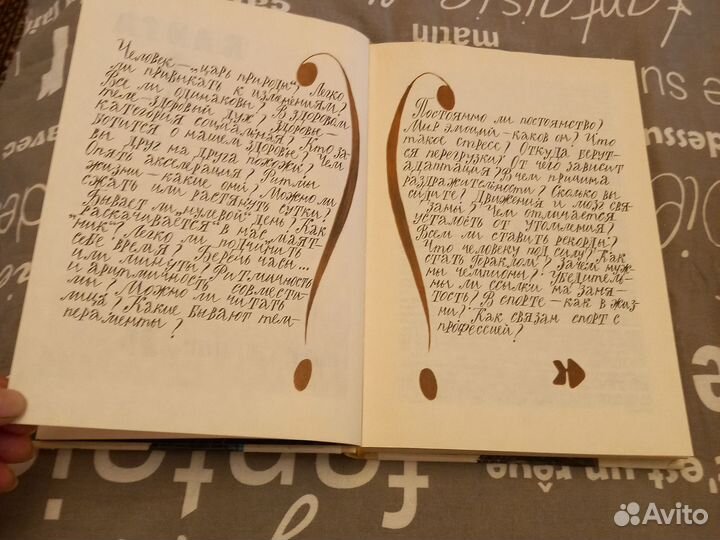 Человек—„царь природы“? Легко
ли привыкать к изменениям?
Все ли одинаковы? В здоровом
теле—здоровый дух? Здоровье—
категория социальная? Кто за-
ботится о нашем здоровье? Чем
вы друг на друга похожи?
Опять акселерация? Ритмы
жизни—какие они? Можно ли
сжать или растянуть сутки?
Бывает ли „нулевой“ день? Как
„раскачивается“ в нас „маят-
ник“? Легко ли подчинить
себе время? Беречь часы...
или минуты? Ритмичность
и аритмичность совмести-
мы? Можно ли читать
лица? Какие бывают тем-
пераменты?
Постоянно ли постоянство?
Мир эмоций—каков он? Что
такое стресс? Откуда берут-
ся перегрузки? От чего зависит
адаптация? В чем причина
раздражительности? Сколько вы
сидите? Движения и мозг свя-
заны? Чем отличается
усталость от утомления?
Всем ли ставить рекорды?
Что человеку под силу? Как
стать Гераклом? Зачем нуж-
ны чемпионы? Убедитель-
ны ли ссылки на заня-
тость? В спорте—как в жиз-
ни? Как связан спорт с
профессией?
matin
avec
dessus
su
c'est un rêve
Avito